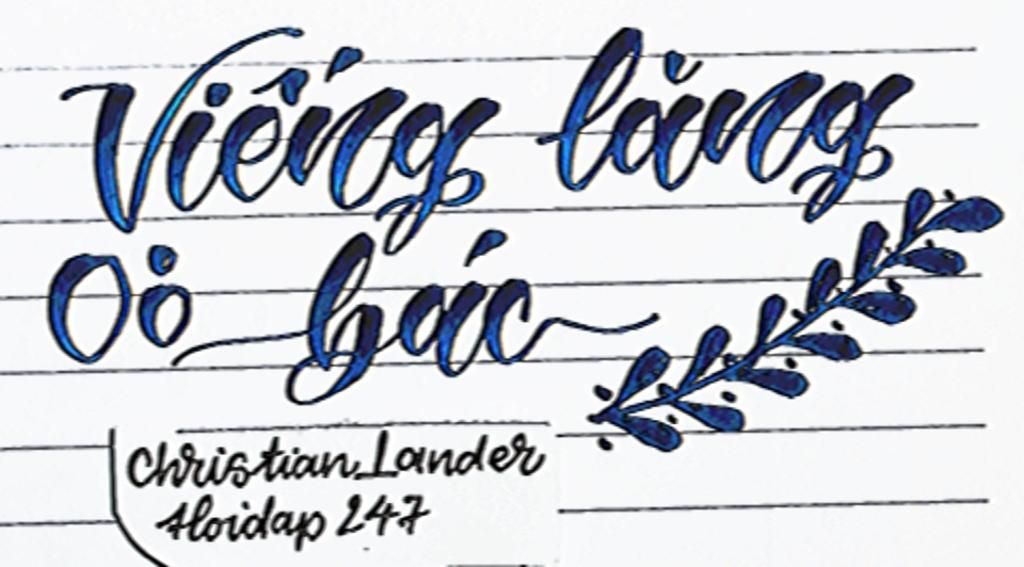 Viếng lăng
bác
Christian_Lander
Hoidap 247